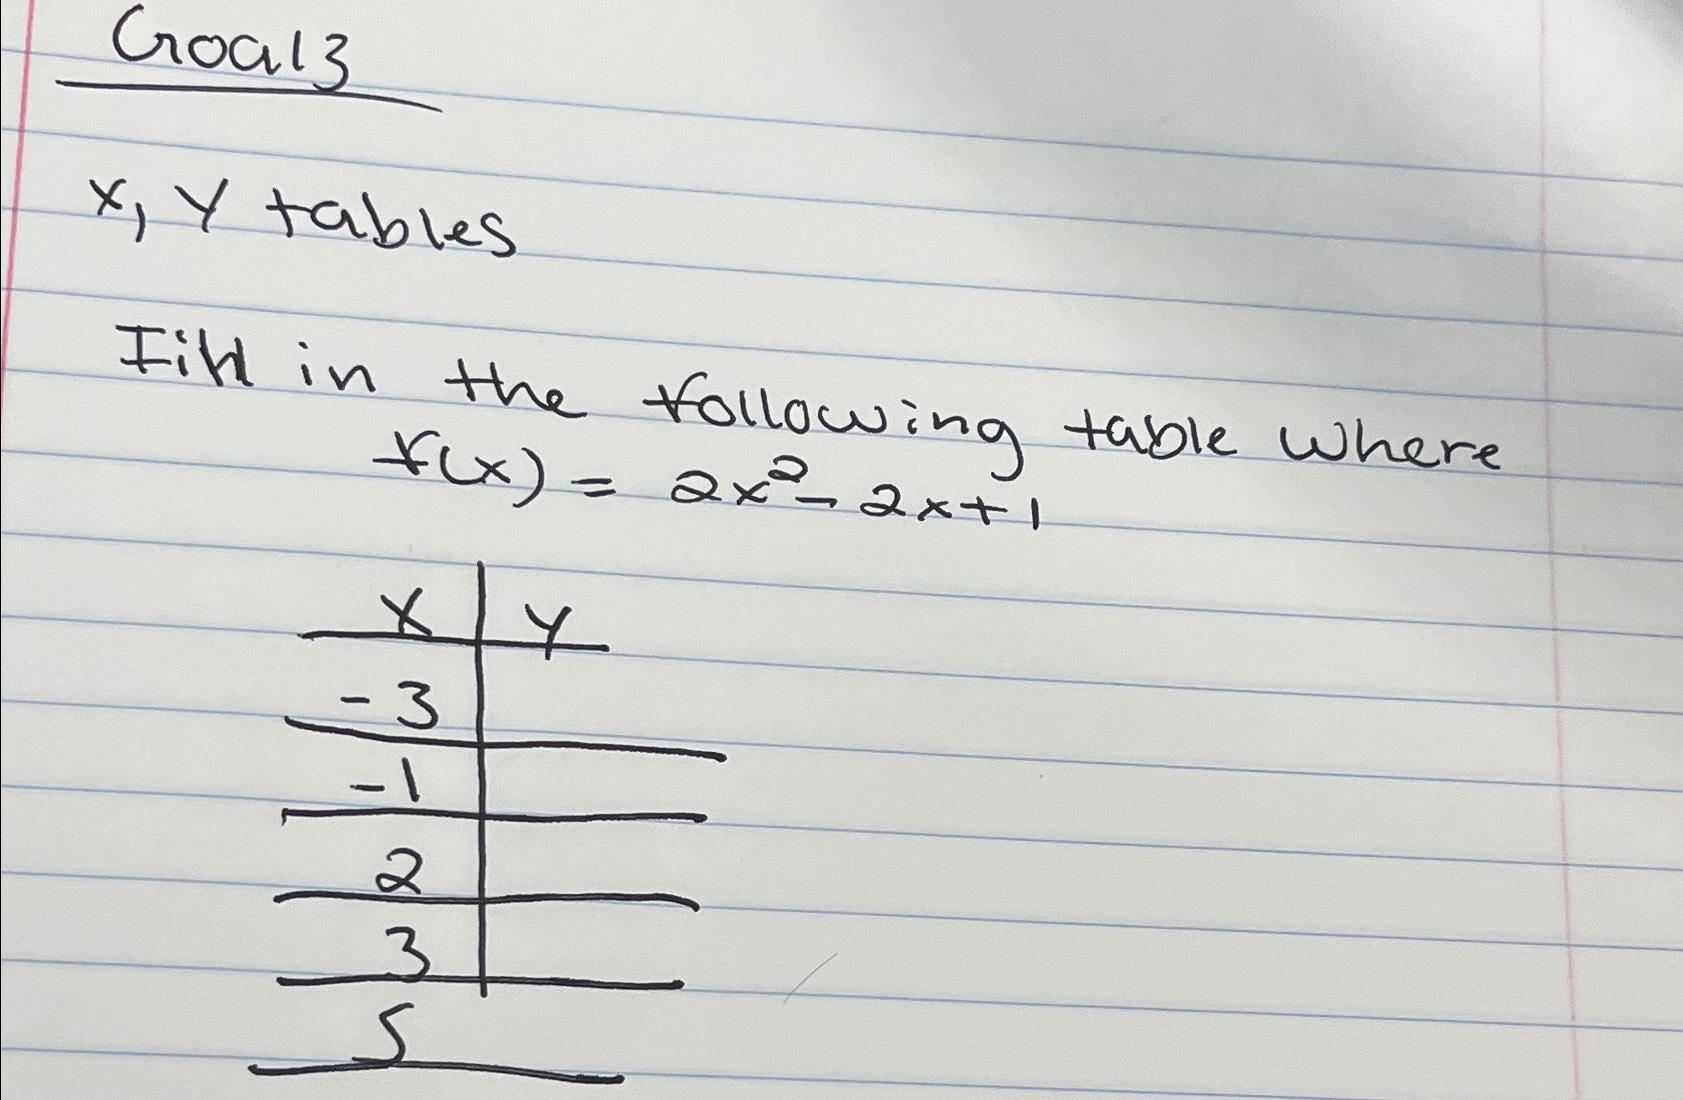 Goal 3
x, y tables
Fill in the following table where
f(x) = 2x² - 2x + 1
x y
-3
-1
2
3
5